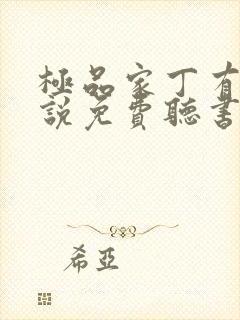 極品家丁有
說免費聽書
希亞